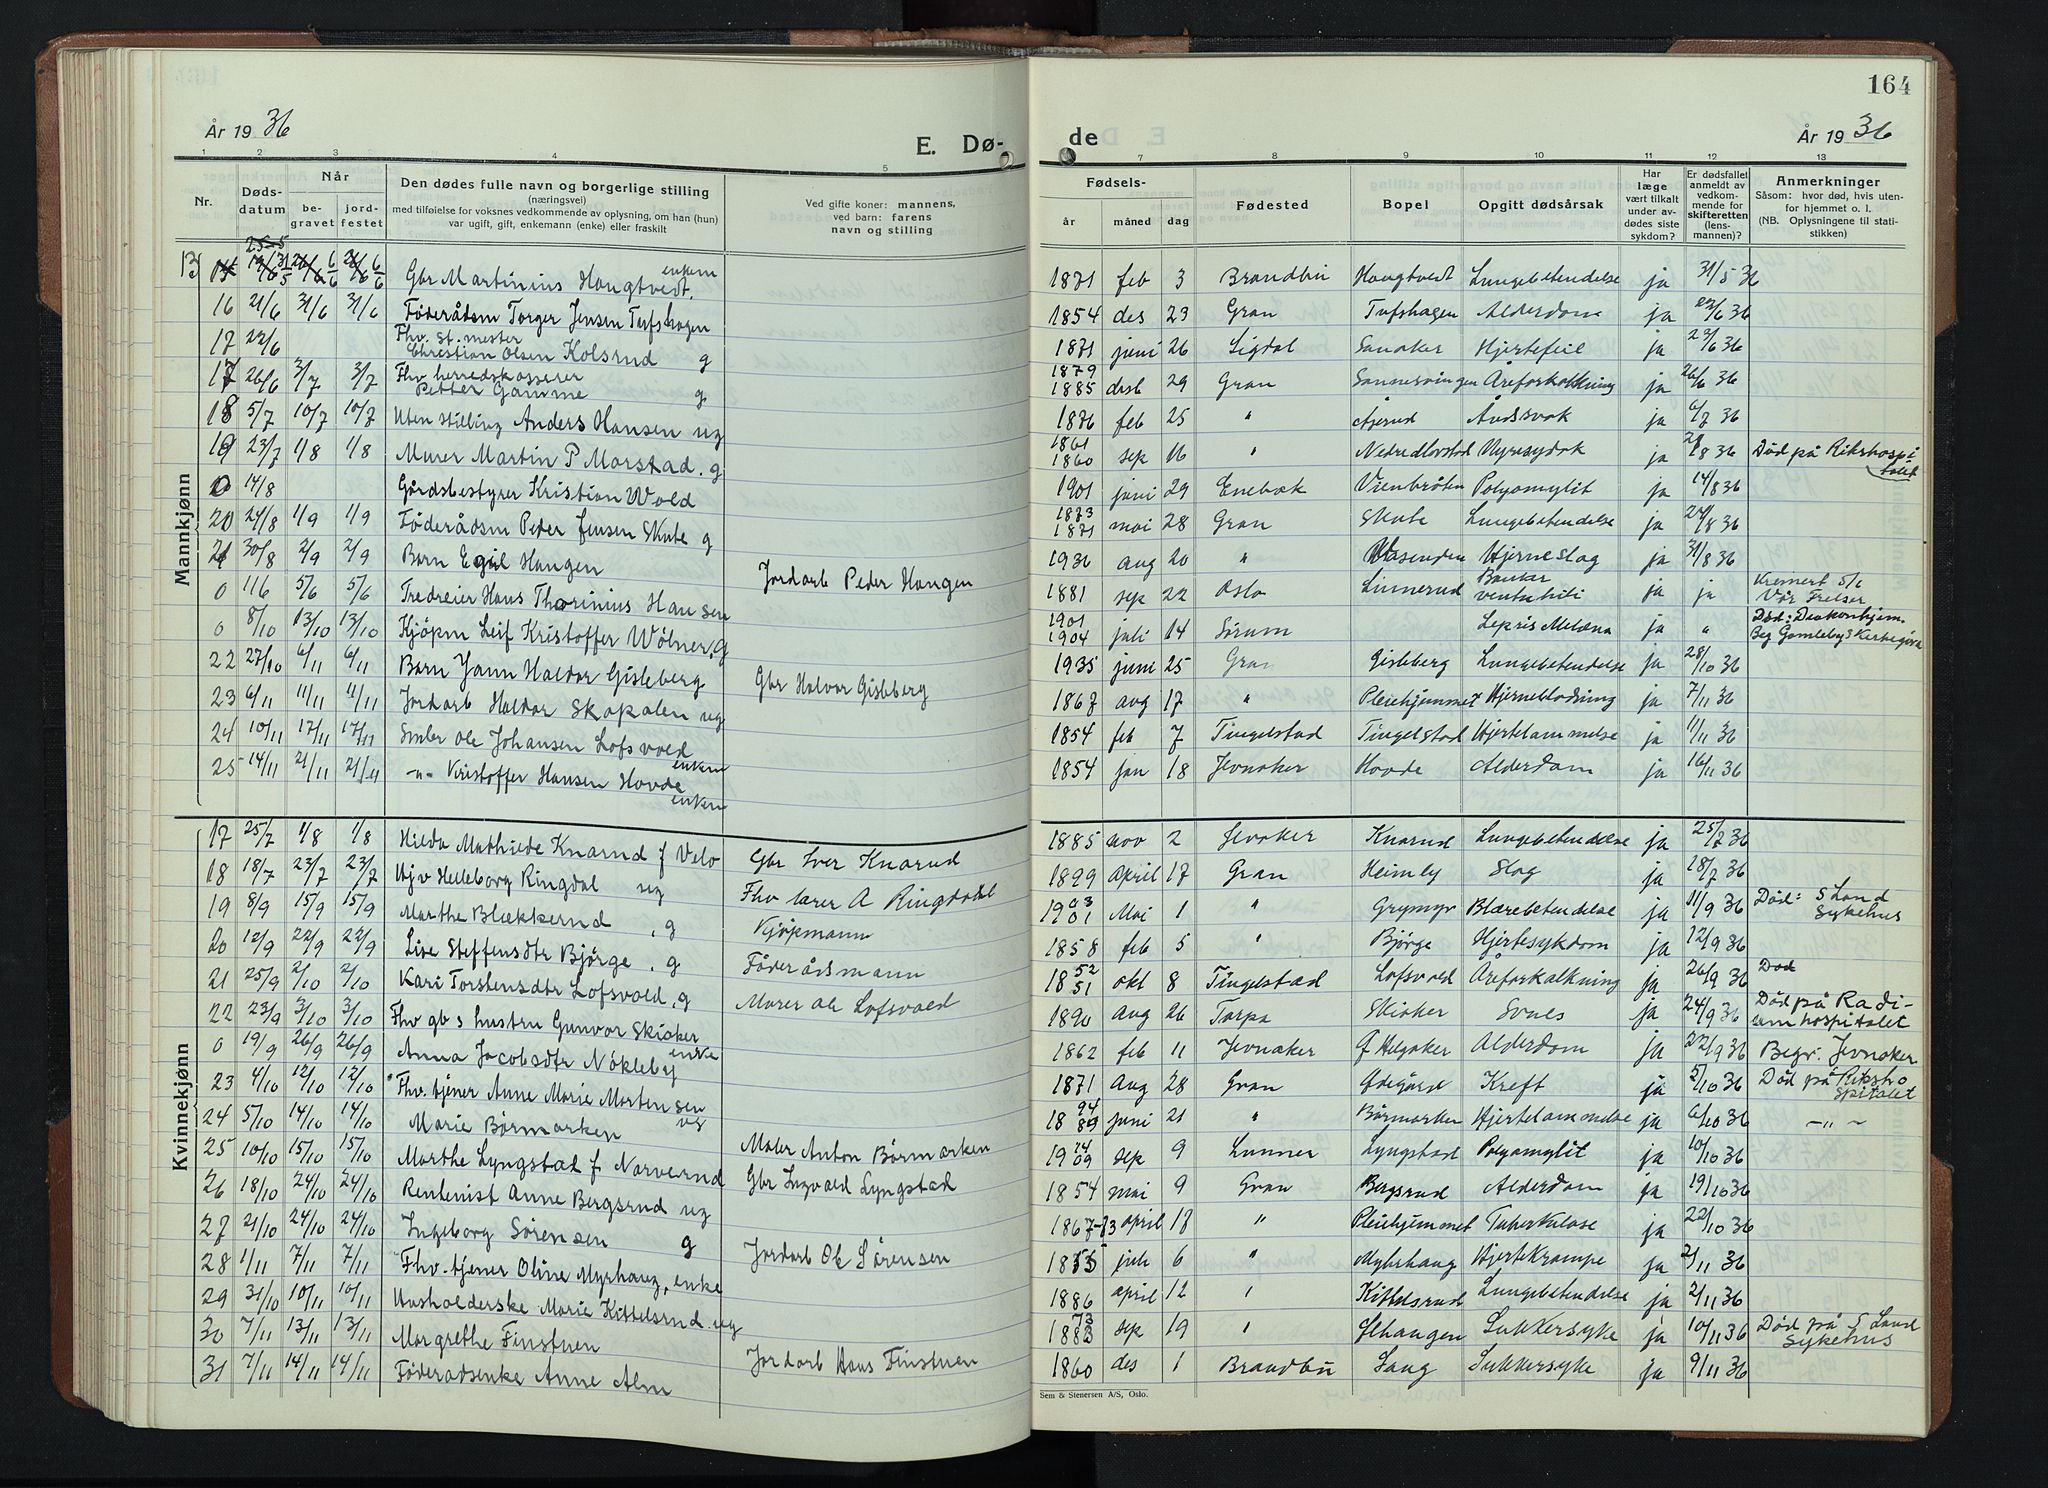 164
År 19 36
E. Dø-
de
År 19 36
1 2 3 4 5 7 8 9 10 11 12 13
Nr.
Døds-
datum
Når
be-
gravet
jord-
festet
Den dødes fulle navn og borgerlige stilling
(næringsvei)
med tilføielse for voksnes vedkommende av oplysning, om han (hun)
var ugift, gift, enkemann (enke) eller fraskilt
Ved gifte koner: mannens,
ved barn: farens
navn og stilling
Fødsels-
år måned dag
Fødested
Bopel
Opgitt dødsårsak
Har
læge
vært tilkalt
under av-
dødes siste
sykdom?
Er dødsfallet
anmeldt av
vedkom-
mende for
skifteretten
(lens-
mannen)?
Anmerkninger
Såsom: hvor død, hvis uten-
for hjemmet o. l.
(NB. Oplysningene til stati-
stikken)
Mannkjønn
13 31/5 6/6 6/6 Gbr Martinius Hougtvedt enkem 1871 feb 3 Brandbu Hougtvedt Lungebetendelse ja 31/5 36
16 21/6 31/6 31/6 Føderådsm Torger Jensen Tufshagen 1854 des 23 Gran Tufshagen Alderdom ja 23/6 36
17 22/6 Fhv. St. mester Christian Olsen Kolsrud g 1871 juni 26 Sigdal Sanaker Hjertefeil ja 23/6 36
17 26/6 3/7 3/7 Fhv herredskasserer Petter Gamme g 1879 1885 desb 29 Gran Sannesvingen Åreforkalkning ja 26/6 36
18 5/7 10/7 10/7 Uten stilling Anders Hansen ug 1876 feb 25 " Åndsvak ja 6/7 36
19 23/7 1/8 1/8 Murer Martin P Morstad. g 1861 1860 sep 16 " Nyresydok ja 8 36 Død på Rikshospitalet
0 14/8 Gårdsbestyrer Kristian Wold 1901 juni 29 Enebak Vienbråten Polyomylit ja 14/8 36
20 24/8 1/9 1/9 Føderådsm Peder Jensen Skute g 1873 1871 mai 28 Gran Skute Lungebetendelse ja 24/8 36
21 30/8 2/9 2/9 Barn Egil Haugen Jordarb Peder Haugen 1936 aug 20 " Vasenden Hjerneslag ja 31/8 36
0 1/6 5/6 5/6 Tredreier Hans Thorinius Hansen 1881 sep 22 Oslo Linnerud ja ja Kremert 5/6 Vår Frelser
0 8/10 13/10 13/10 Kjøpm Leif Kristoffer Wölner, g 1901 1904 juli 14 Sørum Melæna ja " Død: Diakonhjem. Beg Gamlebyg Kirkegård
22 27/10 6/11 6/11 Barn Jann Haldor Gisleberg Gbr Halvor Gisleberg 1935 juni 25 Gran Gisleberg Lungebetendelse ja 28/10 36
23 6/11 11/11 11/11 Jordarb Haldor Skopalen ug 1867 aug 17 " Pleiehjemmet Hjerneblødning ja 7/11 36
24 10/11 17/11 17/11 Smbr Ole Johansen Lofsvold enkem 1854 feb 7 Tingelstad Tingelstad Hjertelammelse ja 11/11 36
25 14/11 21/11 21/11 -"- Kristoffer Hansen Hovde enkem 1854 jan 18 Jevnaker Hovde Alderdom ja 16/11 36
Kvinnekjønn
17 25/7 1/8 1/8 Hilda Mathilde Knarud f Velo Gbr Iver Knarud 1885 nov 2 Jevnaker Knarud Lungebetendelse ja 25/7 36
18 18/7 23/7 23/7 Hjv Helleborg Ringdal ug Fhv lærer A Ringdal 1899 april 17 Gran Heimly Slag ja 18/7 36
19 8/9 15/9 15/9 Marthe Blækkerud, g Kjøpmann 1903 01 Mai 1 " Grymyr Blærebetendelse ja 11/9 36 Død: S Land Sykehus
20 12/9 22/9 22/9 Live Steffensdtr Bjørge, g Føderådsmann 1858 feb 5 " Bjørge Hjertesykdom ja 12/9 36
21 25/9 2/10 2/10 Kari Torstensdtr Lofsvold, g Murer Ole Lofsvold 1852 51 okt 8 Tingelstad Lofsvold Åreforkalkning ja 26/9 36 Død
22 23/9 3/10 3/10 Fhv gb s hustru Gunvor Skiaker enke 1890 aug 26 Torpa Skiaker ja 24/9 36 Død på Radiumhospitalet
0 19/9 26/9 26/9 Anna Jacobsdtr Nökleby 1862 feb 11 Jevnaker Alderdom ja 22/9 36 Begr: Jevnaker
23 4/10 12/10 12/10 Fhv. tjener Anne Marie Mortensen ug 1871 aug 28 Gran Ødegård Kreft ja 5/10 36 Død på Rikshospitalet
24 5/10 14/10 14/10 Marie Børmarken Maler Anton Børmarken 1894 89 juni 21 " Børmarken Hjertelammelse ja 6/10 36 -"-
25 10/10 15/10 15/10 Marthe Lyngstad f Narverud Gbr Ingvald Lyngstad 1914 09 sep 9 Lunner Lyngstad Polyomylit ja 10/10 36
26 18/10 24/10 24/10 Rentenist Anne Bergsrud ug 1854 mai 9 Gran Bergsrud Alderdom ja 19/10 36
27 21/10 24/10 24/10 Ingeborg Sørensen g Jordarb Ole Sørensen 1867-73 april 17 " Pleiehjemmet Tuberkulose ja 22/10 36
28 1/11 7/11 7/11 Fhv. tjener Oline Myrhaug, enke 1855 juli 6 " Myhrhaug Hjertekrampe ja 2/11 36
29 31/10 10/11 10/11 Husholderske Marie Kittelsrud ug 1886 april 12 " Kittelsrud Lungebetendelse ja 2/11 36
30 7/11 13/11 13/11 Margrethe Finstuen Jordarb Hans Finstuen 1883 73 sep 19 " Sukkersyke ja 10/11 36 Død på S Land Sykehus
31 7/11 14/11 14/11 Føderadsenke Anne Alm 1860 des 1 Brandbu Sang Sukkersyke ja 9/11 36
Sem & Stenersen A/S, Oslo.